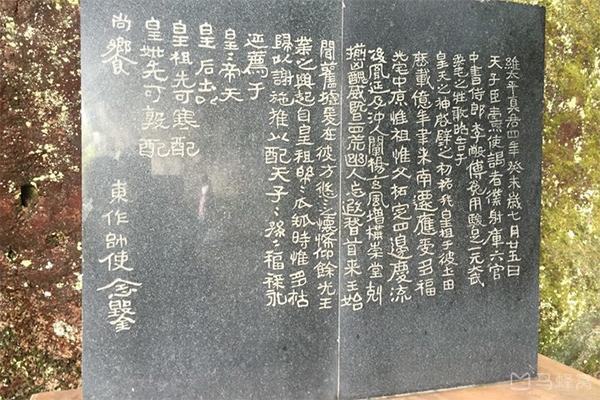 維太平真君四年癸未歲七月廿五日
天子臣燾使謁者僕射庫六官
中書侍郎李敞傅㝹用駿足一元大武
柔毛之牲敢昭告于
皇天之神啟辟之初祐我皇祖于彼土田
歷載億年聿來南遷應受多福
光宅中原惟祖惟父拓定四邊慶流
後胤延及沖人闡揚玄風增構崇堂剋
揃凶醜威暨四荒幽人忘遐稽首來王始
聞舊墟爰在彼方悠〻之懷希仰餘光王
業之興起自皇祖緜〻瓜瓞時惟多祜
歸以謝施推以配天子〻孫〻福祿永
延薦于
皇〻帝天
皇〻后土以
皇祖先可寒配
皇妣先可敦配
尚饗
東作帥使念鑿
马蜂窝